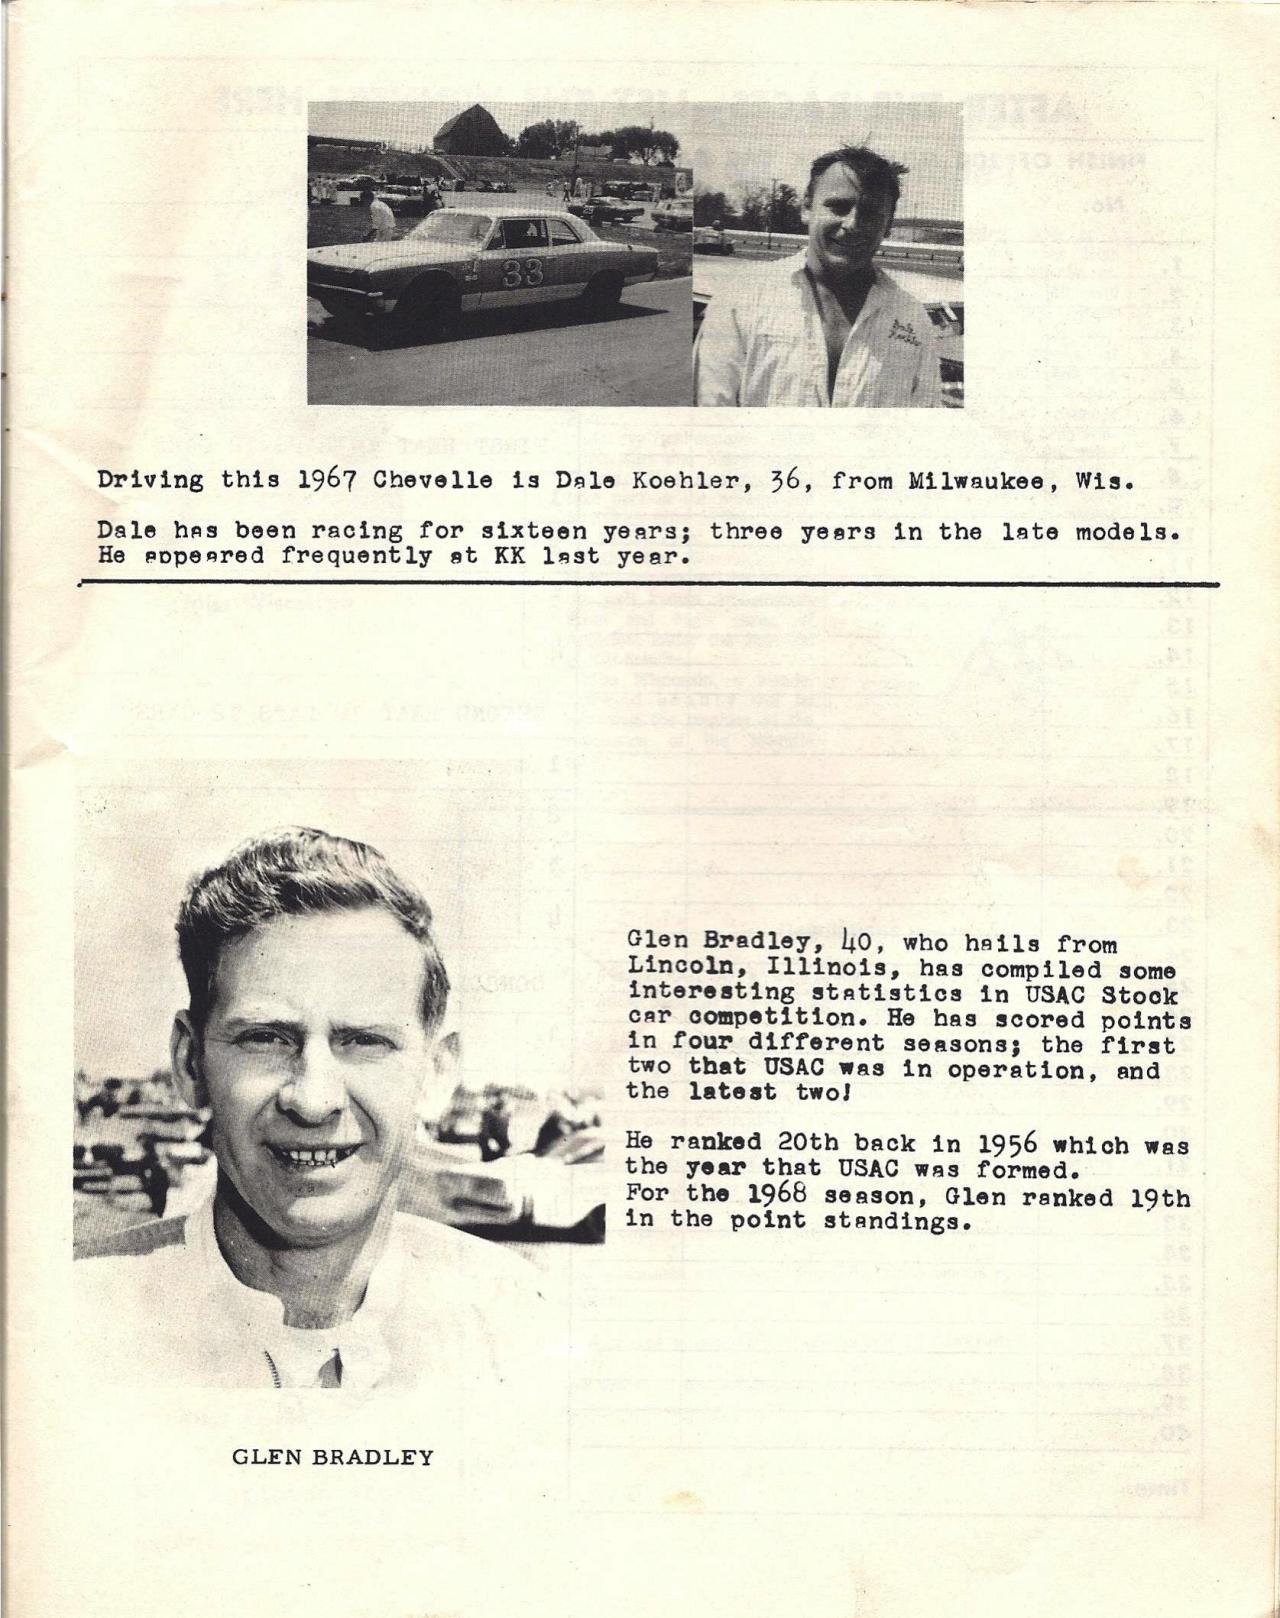 33
Dale
Koehler
Driving this 1967 Chevelle is Dale Koehler, 36, from Milwaukee, Wis.
Dale has been racing for sixteen years; three years in the late models.
He appeared frequently at KK last year.
Glen Bradley, 40, who hails from
Lincoln, Illinois, has compiled some
interesting statistics in USAC Stock
car competition. He has scored points
in four different seasons; the first
two that USAC was in operation, and
the latest two!
He ranked 20th back in 1956 which was
the year that USAC was formed.
For the 1968 season, Glen ranked 19th
in the point standings.
GLEN BRADLEY